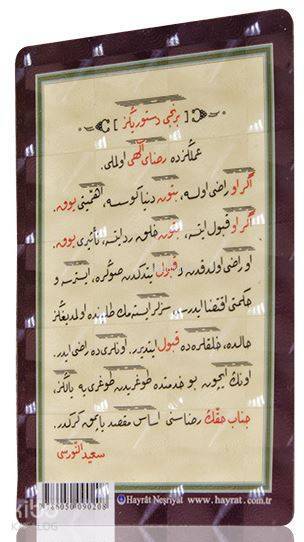 [ برنجی دستوریڭز ]
عملڭزده رضای الٰهی اولملی.
اگر او راضی اولسه، بتون دنیا كوسسه، اهمیتی یوق.
اگر او قبول ایتسه، بتون خلق رد ایتسه، تأثیری یوق.
او راضی اولدقدن و قبول ایتدكدن صوڭره، ایسترسه و
حكمتی اقتضا ایدرسه، سزلر ایستەمك طلبنده اولمدیغڭز
حالده، خلقلره ده قبول ایتدیرر، اونلری ده راضی ایدر.
اونڭ ایچون، بو خدمتده طوغریدن طوغری یه یالڭز،
جناب حقڭ رضاسنی اساس مقصد یاپمق گركدر.
سعید النورسی
Hayrât Neşriyat www.hayrat.com.tr